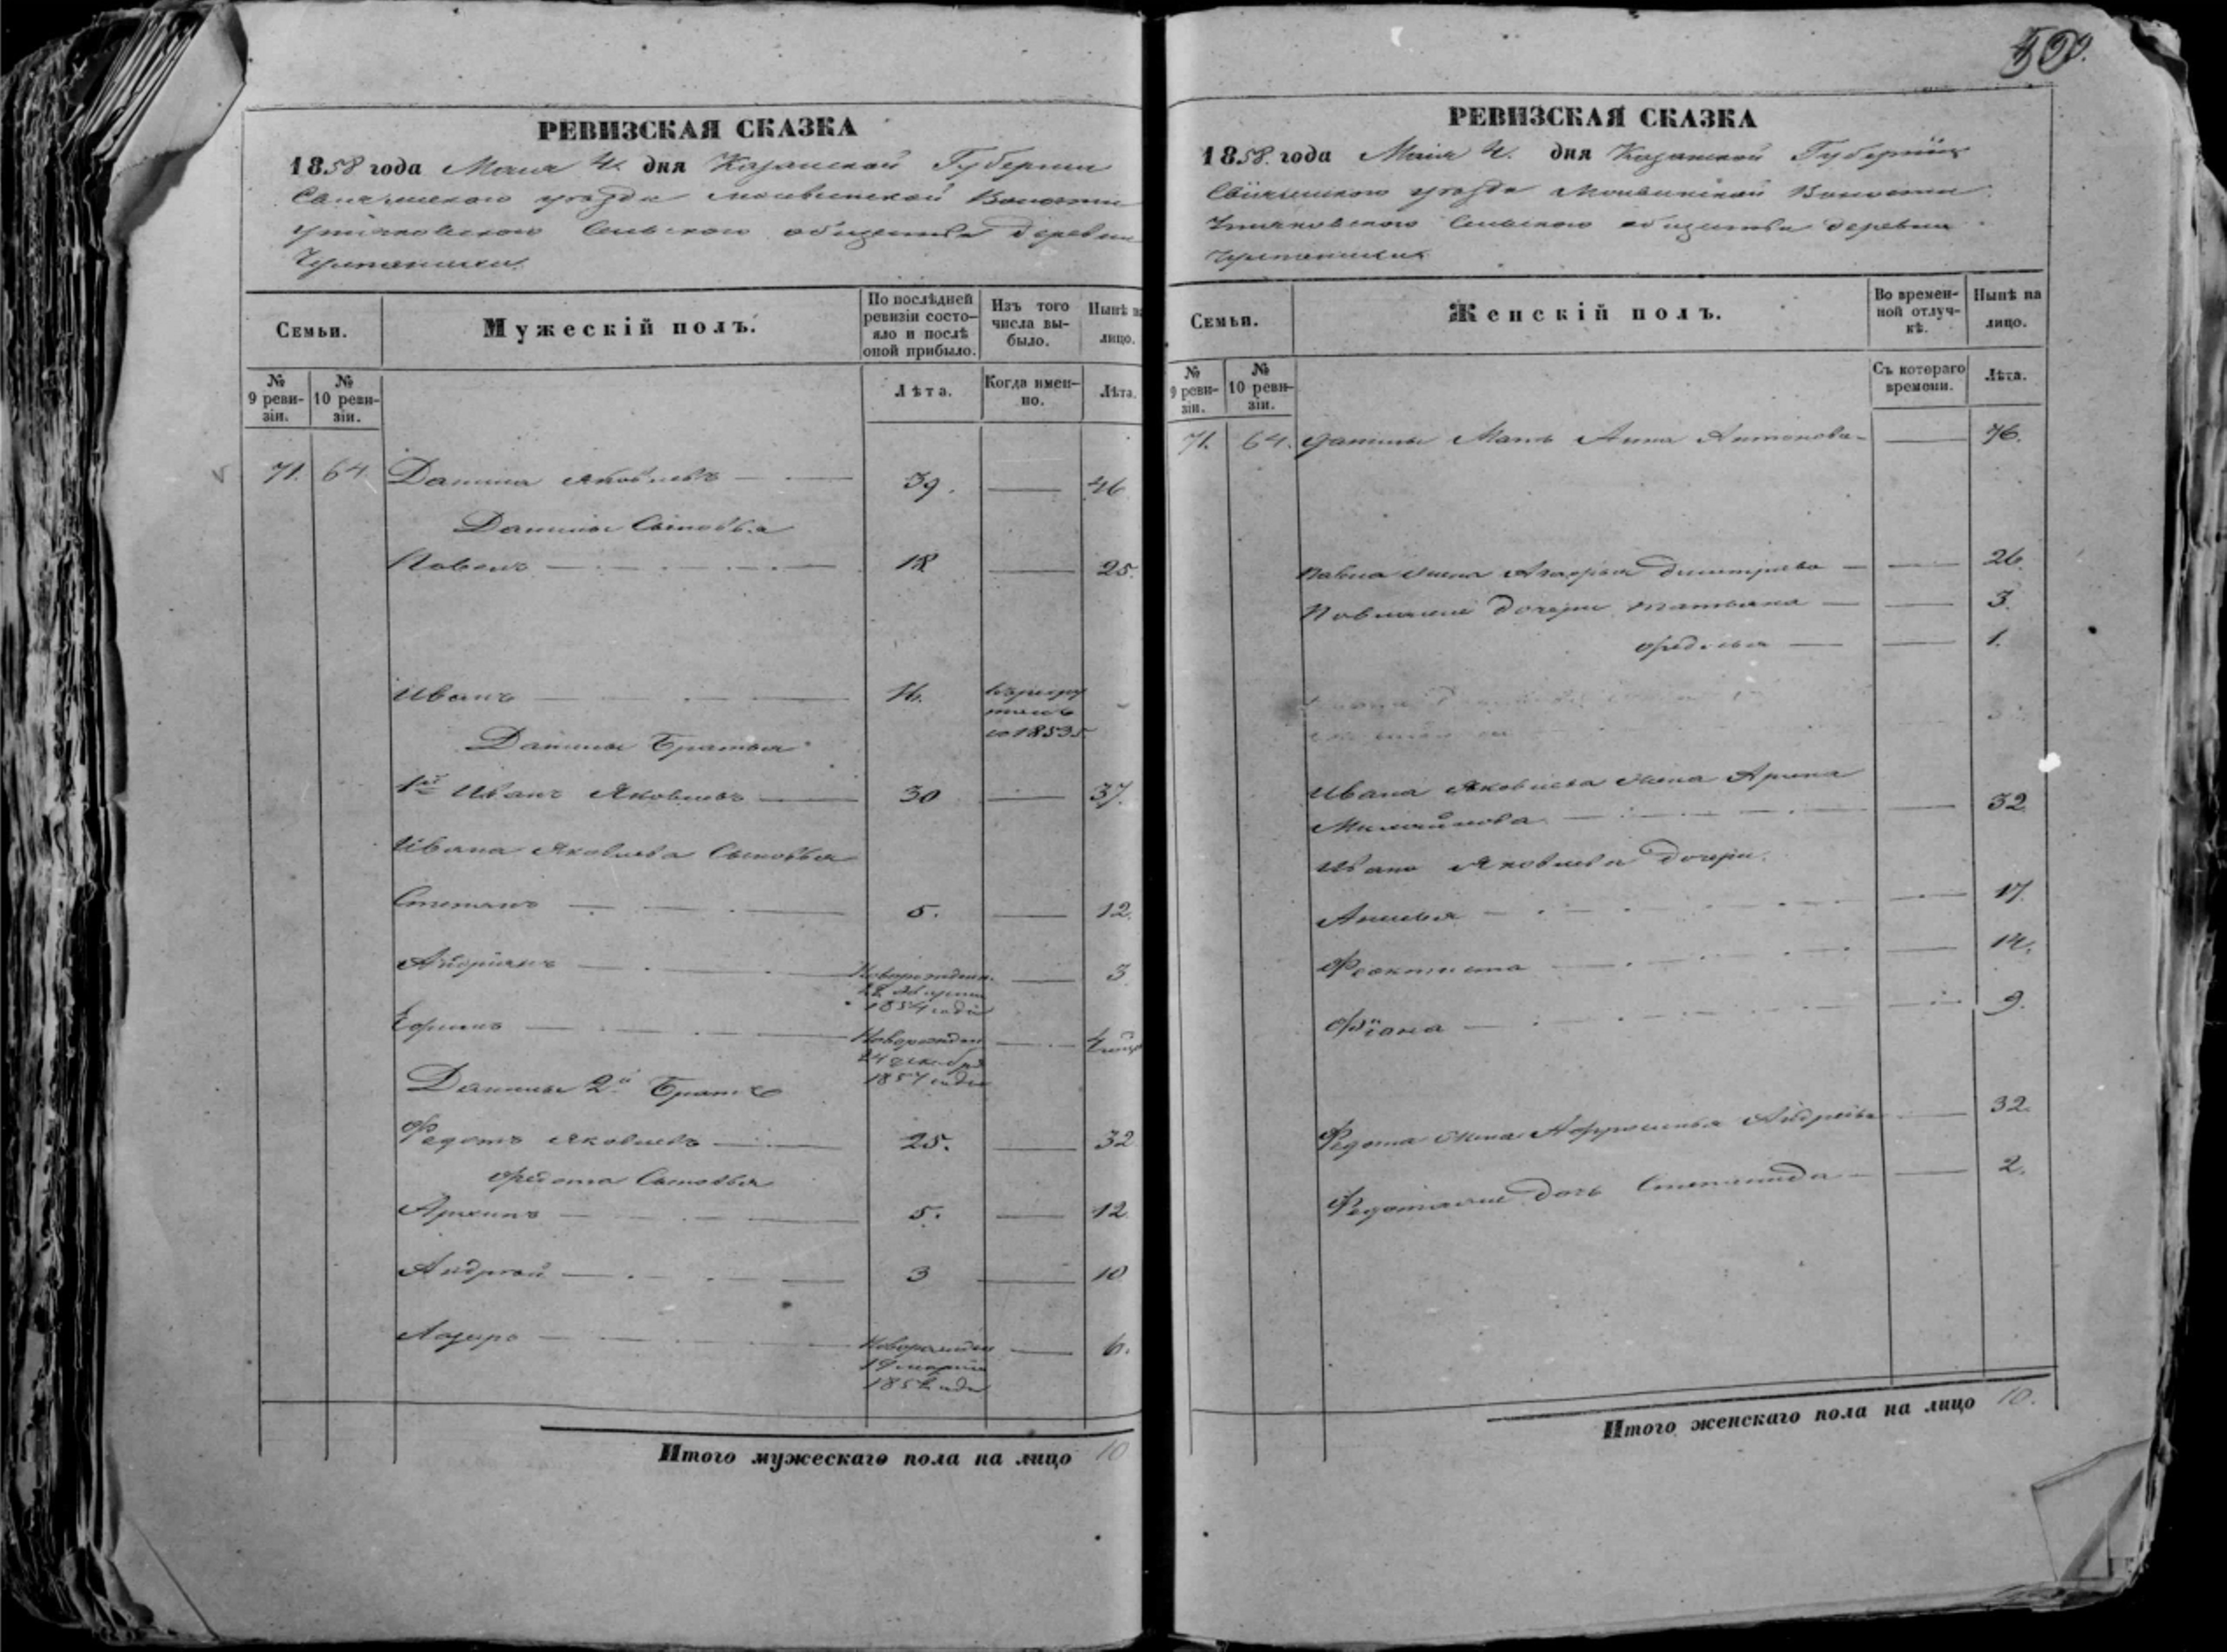 50.
РЕВИЗСКАЯ СКАЗКА
1858 года Маия 4. дня Казанской Губернии
Свіяжскаго уѣзда Волости
Сельскаго общества деревни
Семьи.
Мужескій полъ.
По послѣдней ревизіи состояло и послѣ оной прибыло.
Изъ того числа выбыло.
Нынѣ на лицо.
№ 9 ревизіи.
№ 10 ревизіи.
Лѣта.
Когда именно.
Лѣта.
71. 64. Данила Яковлевъ 39. 46
Данилы Сыновья
Павелъ 18 25.
Иванъ 16. въ рекрутахъ
съ 1853
Данилы Братья
1й Иванъ Яковлевъ 30 37.
Ивана Яковлева Сыновья
Степанъ 5. 12.
Новорожден. 3
1854 года
Новорожден
24 декабря
1857 года
Данилы 2й Братъ
Федотъ Яковлевъ 25. 32
Федота Сыновья
Архипъ 5. 12
Андрей 3 10
Лазарь Новорожден 6.
19 марта
года
Итого мужескаго пола на лицо 10
РЕВИЗСКАЯ СКАЗКА
1858. года Маія 4. дня Казанской Губерніи
Свіяжскаго уѣзда Волости
Сельскаго общества деревни
Семьи.
Женскій полъ.
Во временной отлучкѣ.
Нынѣ на лицо.
№ 9 ревизіи.
№ 10 ревизіи.
Съ котораго времени.
Лѣта.
71. 64. Данилы Мать Анна Антонова 76.
Павла жена Дмитріева 26.
Павловы дочери Татьяна 3.
1.
Ивана Яковлева жена Арина
32
Ивана Яковлева дочери.
17.
Феоктиста 14.
9.
Федота жена Андреева 32.
Федота дочь Степанида 2.
Итого женскаго пола на лицо 10.